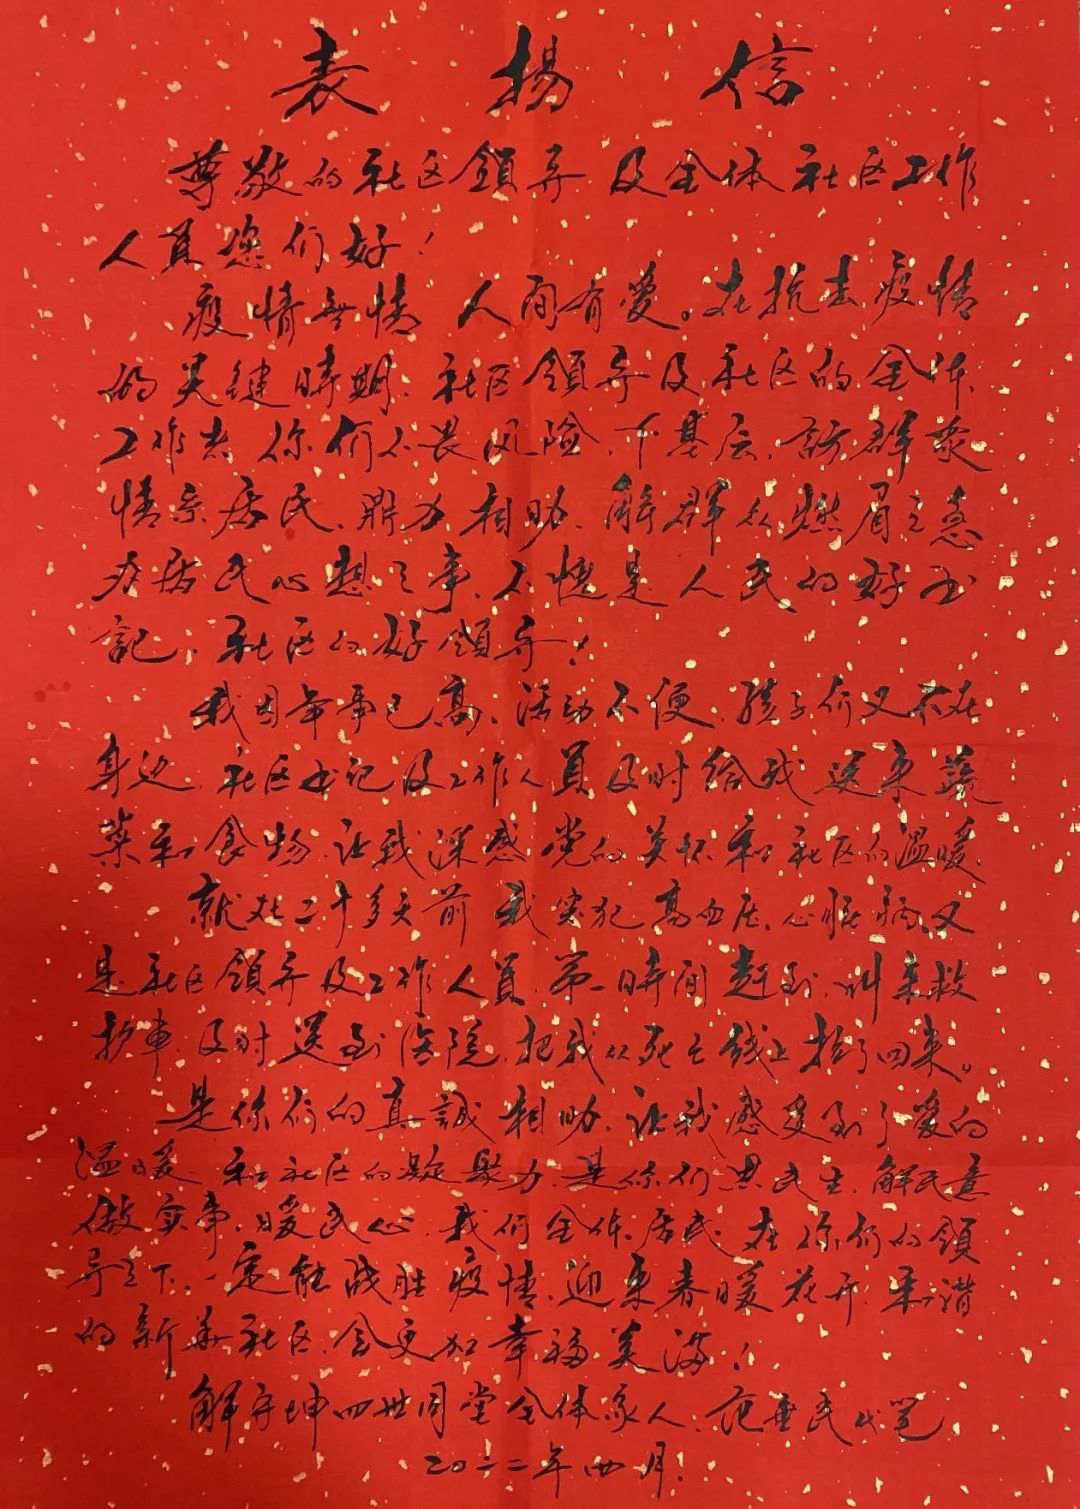 表揚信
尊敬的社区領导及全体社区工作
人員您们好！
疫情無情 人间有愛。在抗击疫情
的关键時期、社区領导及社区的全体、
工作者、你们不畏风险、下基层、訪群衆
情系居民、鼎力相助、解群众燃眉之急
办居民心想之事、不愧是人民的好书
記、社区的好領导！
我因年事已高、活动不便、孩子们又不在
身边、社区书记及工作人員及时给我送来蔬
菜和食物、让我深感党的关怀和社区的温暖、
就在二十多天前 我突犯高血压、心脏病又
是社区領导及工作人員、第一時间赶到、叫来救
护車、及时送到医院、把我从死亡线上抢了回来。
是你们的真誠相助、让我感受到了爱的
温暖、和社区的凝聚力、是你们思民生、解民意
做实事、暖民心、我们全体居民、在你们的領
导之下、一定能战胜疫情、迎来春暖花开、和谐
的新華社区、会更加幸福美滿！
解守坤四世同堂全体家人、范 民代笔
二〇二二年四月、